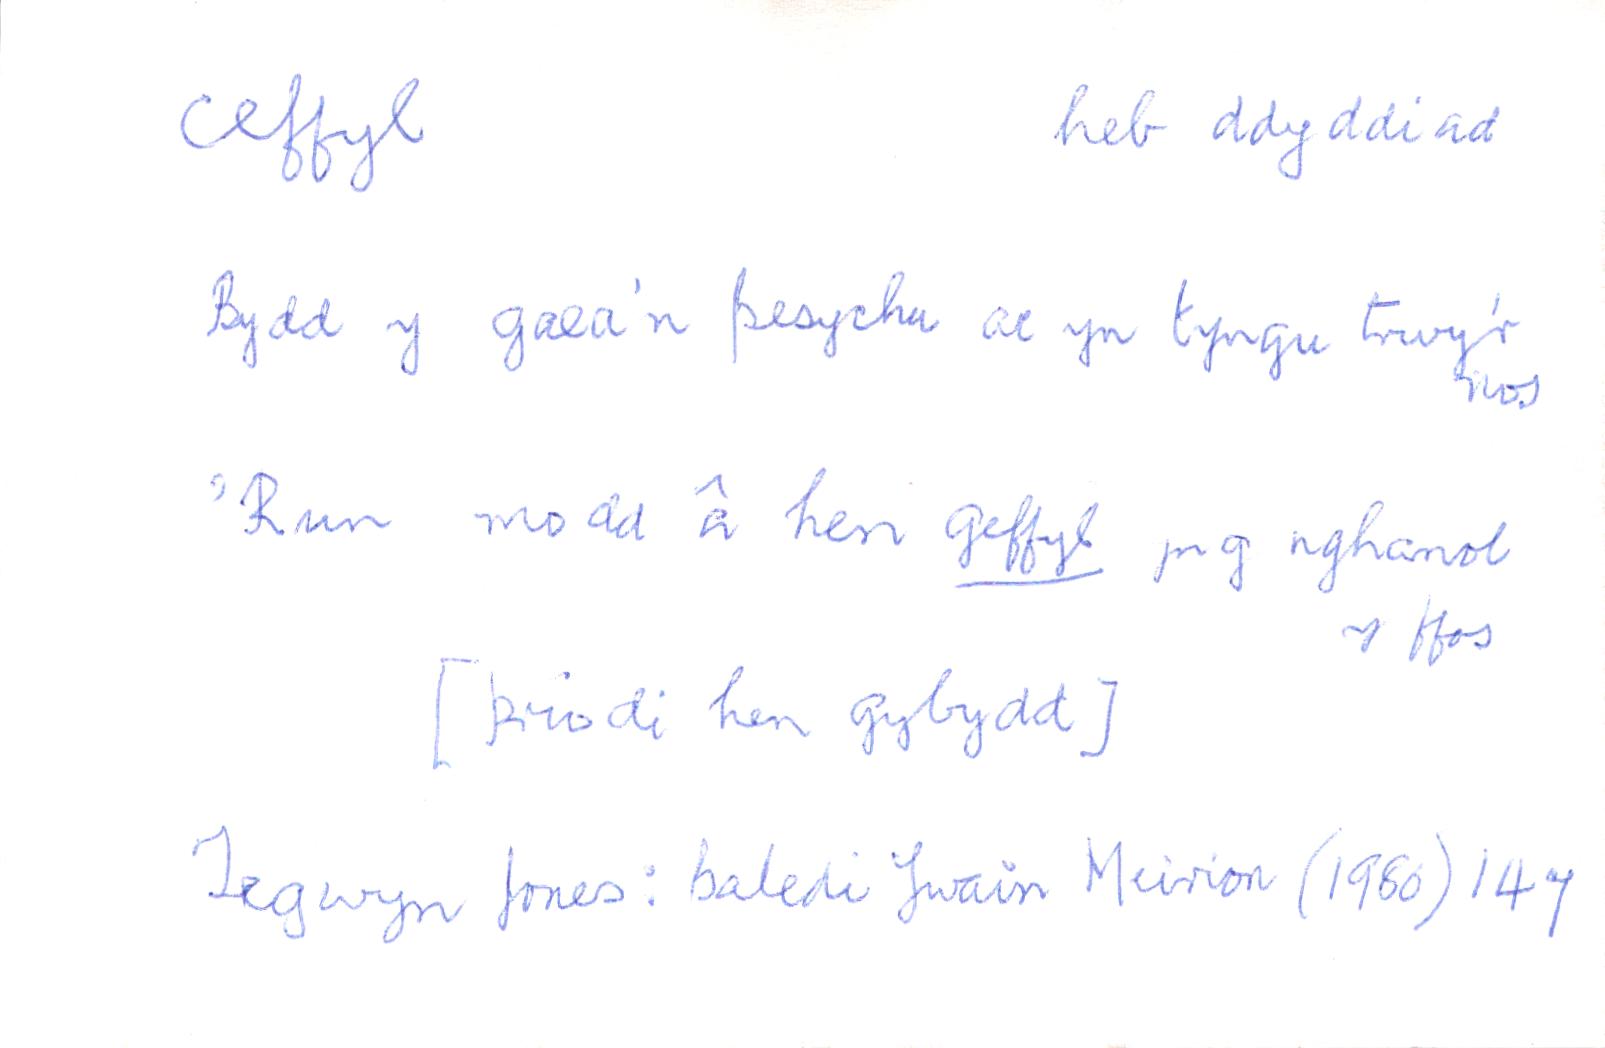 ceffyl heb ddyddiad
Bydd y gaea'n pesychu ac yn tyngu trwy'r
nos
'Run modd â hen geffyl yng nghanol
y ffos
[priodi hen gybydd]
Tegwyn Jones: baledi Ywain Meirion (1980) 147